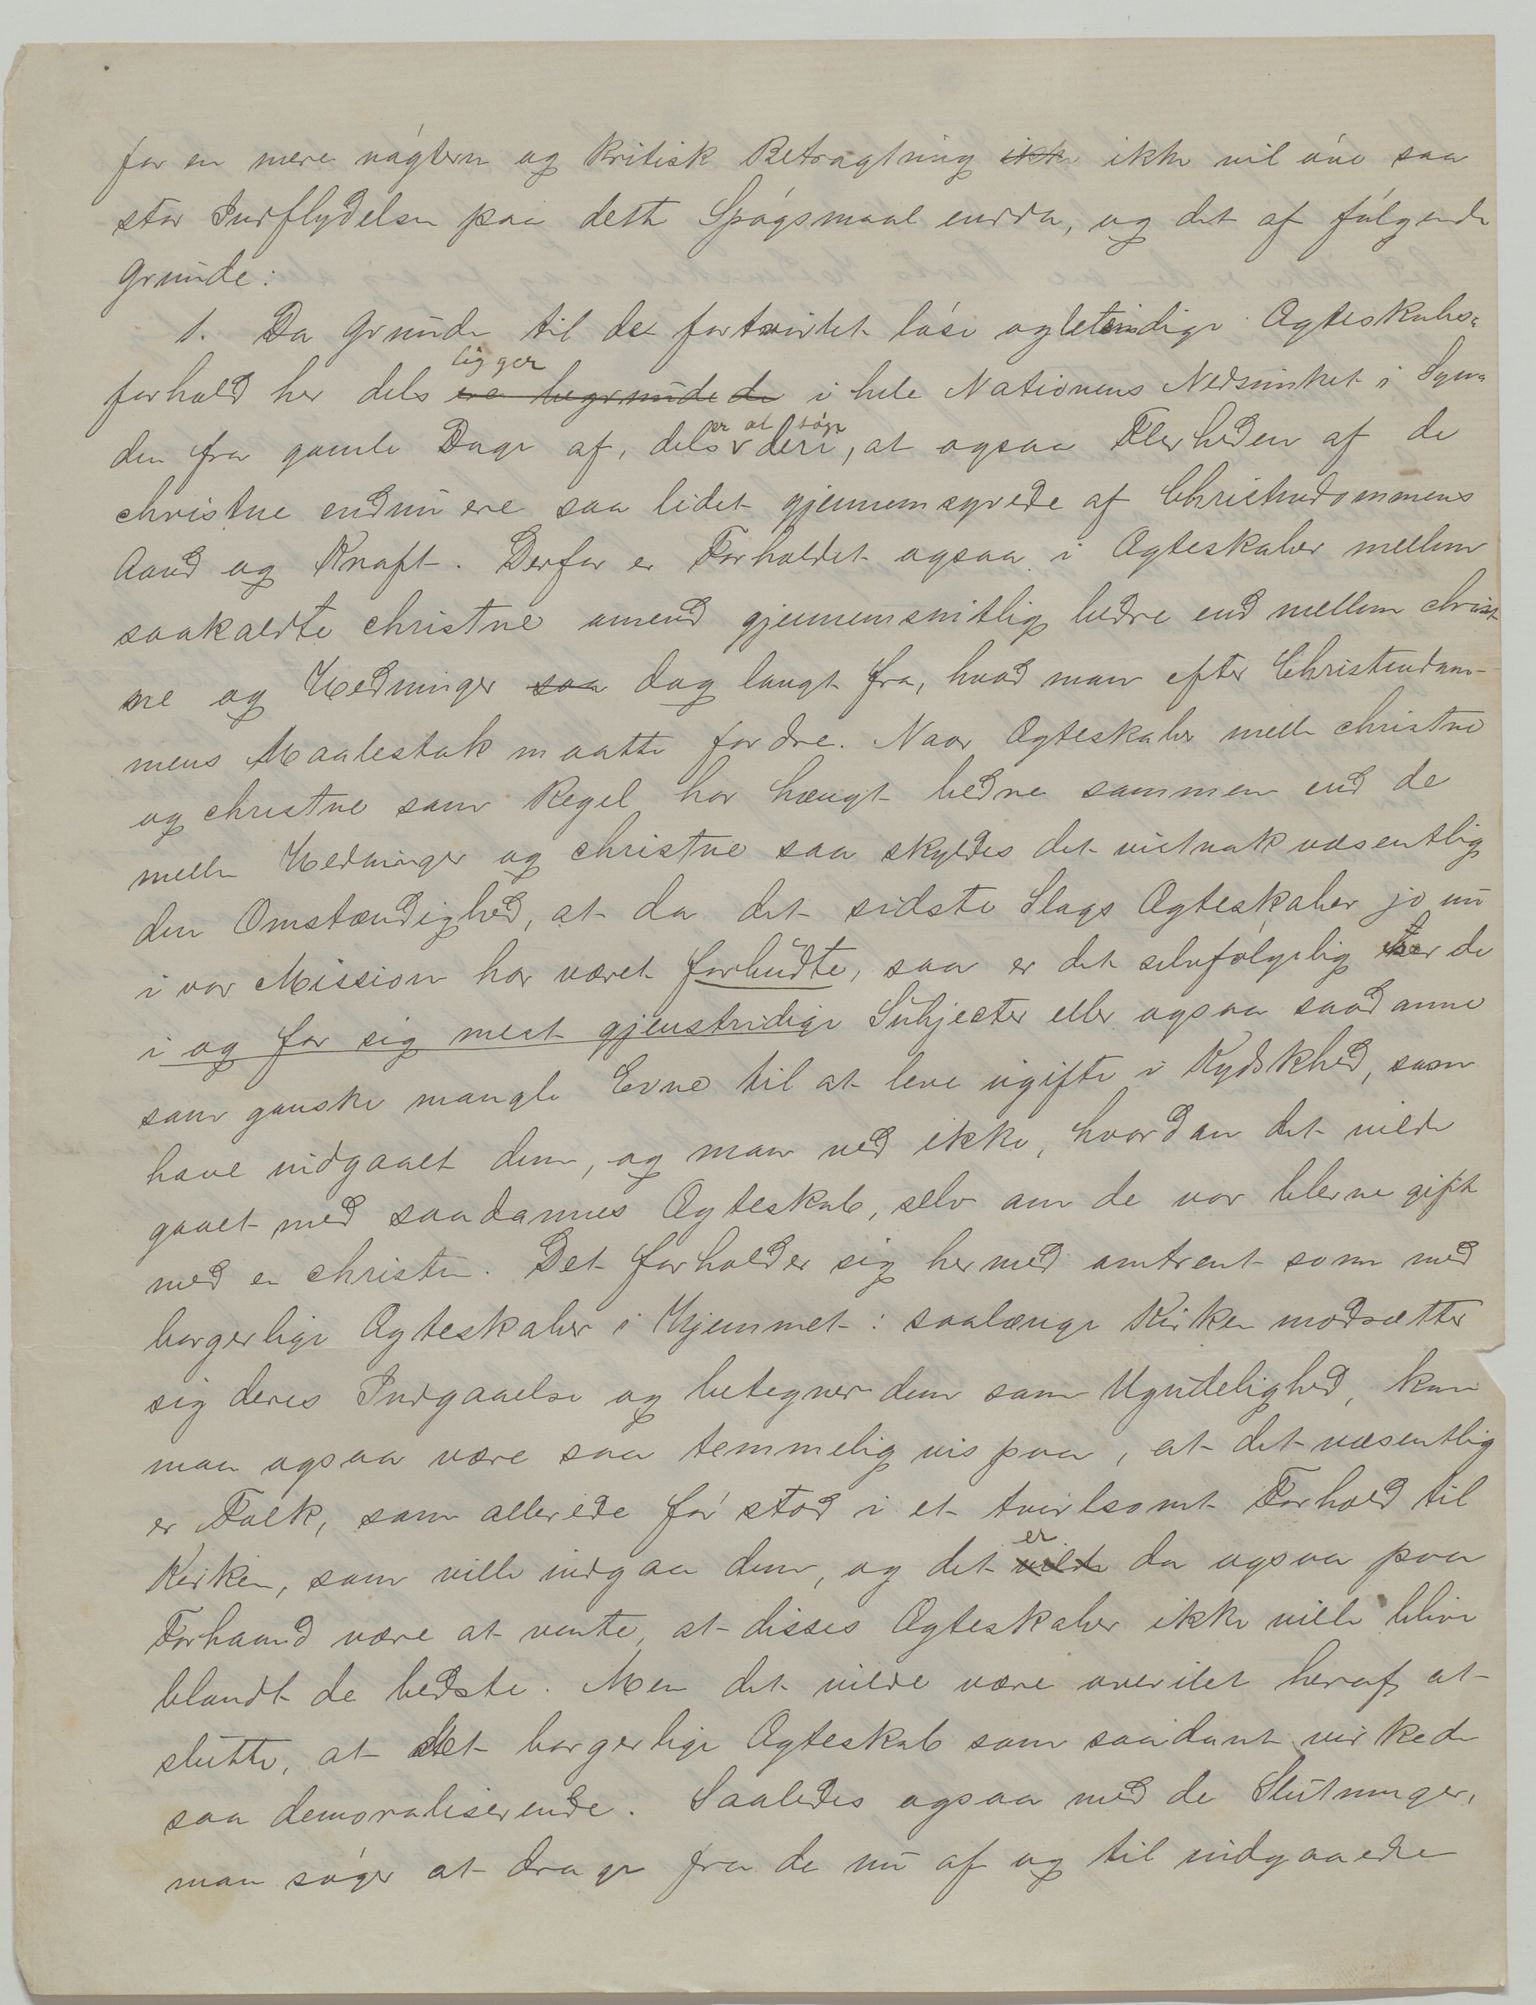 for en mere nøgtern og kritisk Betragtning ikke ikke vil øve saa
stor Indflydelse paa dette Spøgsmaal endda, og det af følgende
Grunde:
1. Da Grunde til de fortvivlet løse og letsindige Ægteskabs-
forhold her dels ligger ere begrundede de i hele Nationens Nedsunket i Syn-
den fra gamle Dage af, dels er at søge deri, at ogsaa Flerheden af de
christne endnu ere saa lidet gjennemsyrede af Christendommens
Aand og Kraft. Derfor er Forholdet ogsaa i Ægteskaber mellem
saakaldte christne omend gjennemsnitlig bedre end mellem christ-
ne og Hedninger saa dog langt fra, hvad man efter Christendom-
mens Maalestok maatte fordre. Naar Ægteskaber melle christne
og christne som Regel har hængt bedre sammen end de
melle Hedninger og christne saa skyldes det vistnok væsentlig
den Omstændighed, at da det sidste Slags Ægteskaber jo nu
i vor Mission har været forbudte, saa er det selvfølgelig de
i og for sig mest gjenstridige Subjecter eller ogsaa saadanne
som ganske mangle Evne til at leve ugifte i Kydskhed, som
have indgaaet dem, og man ved ikke, hvordan det vilde
gaaet med saadannes Ægteskab, selv om de var blevne gift
med en christen. Det forholder sig hermed omtrent som med
borgerlige Ægteskaber i Hjemmet: saalænge Kirken modsætter
sig deres Indgaaelse og betegner dem som Ugudelighed, kan
man ogsaa være saa temmelig vis paa, at det væsentlig
er Folk, som allerede før stod i et tvivlsomt Forhold til
Kirken, som ville indgaa dem, og det er vilde da ogsaa paa
Forhaand være at vente, at disses Ægteskaber ikke ville blive
blandt de bedste. Men det vilde være overilet heraf at
slutte, at det borgerlige Ægteskab som saadant virkede
saa demoraliserende. Saaledes ogsaa med de Slutninger,
man søger at drage fra de nu af og til indgaaede